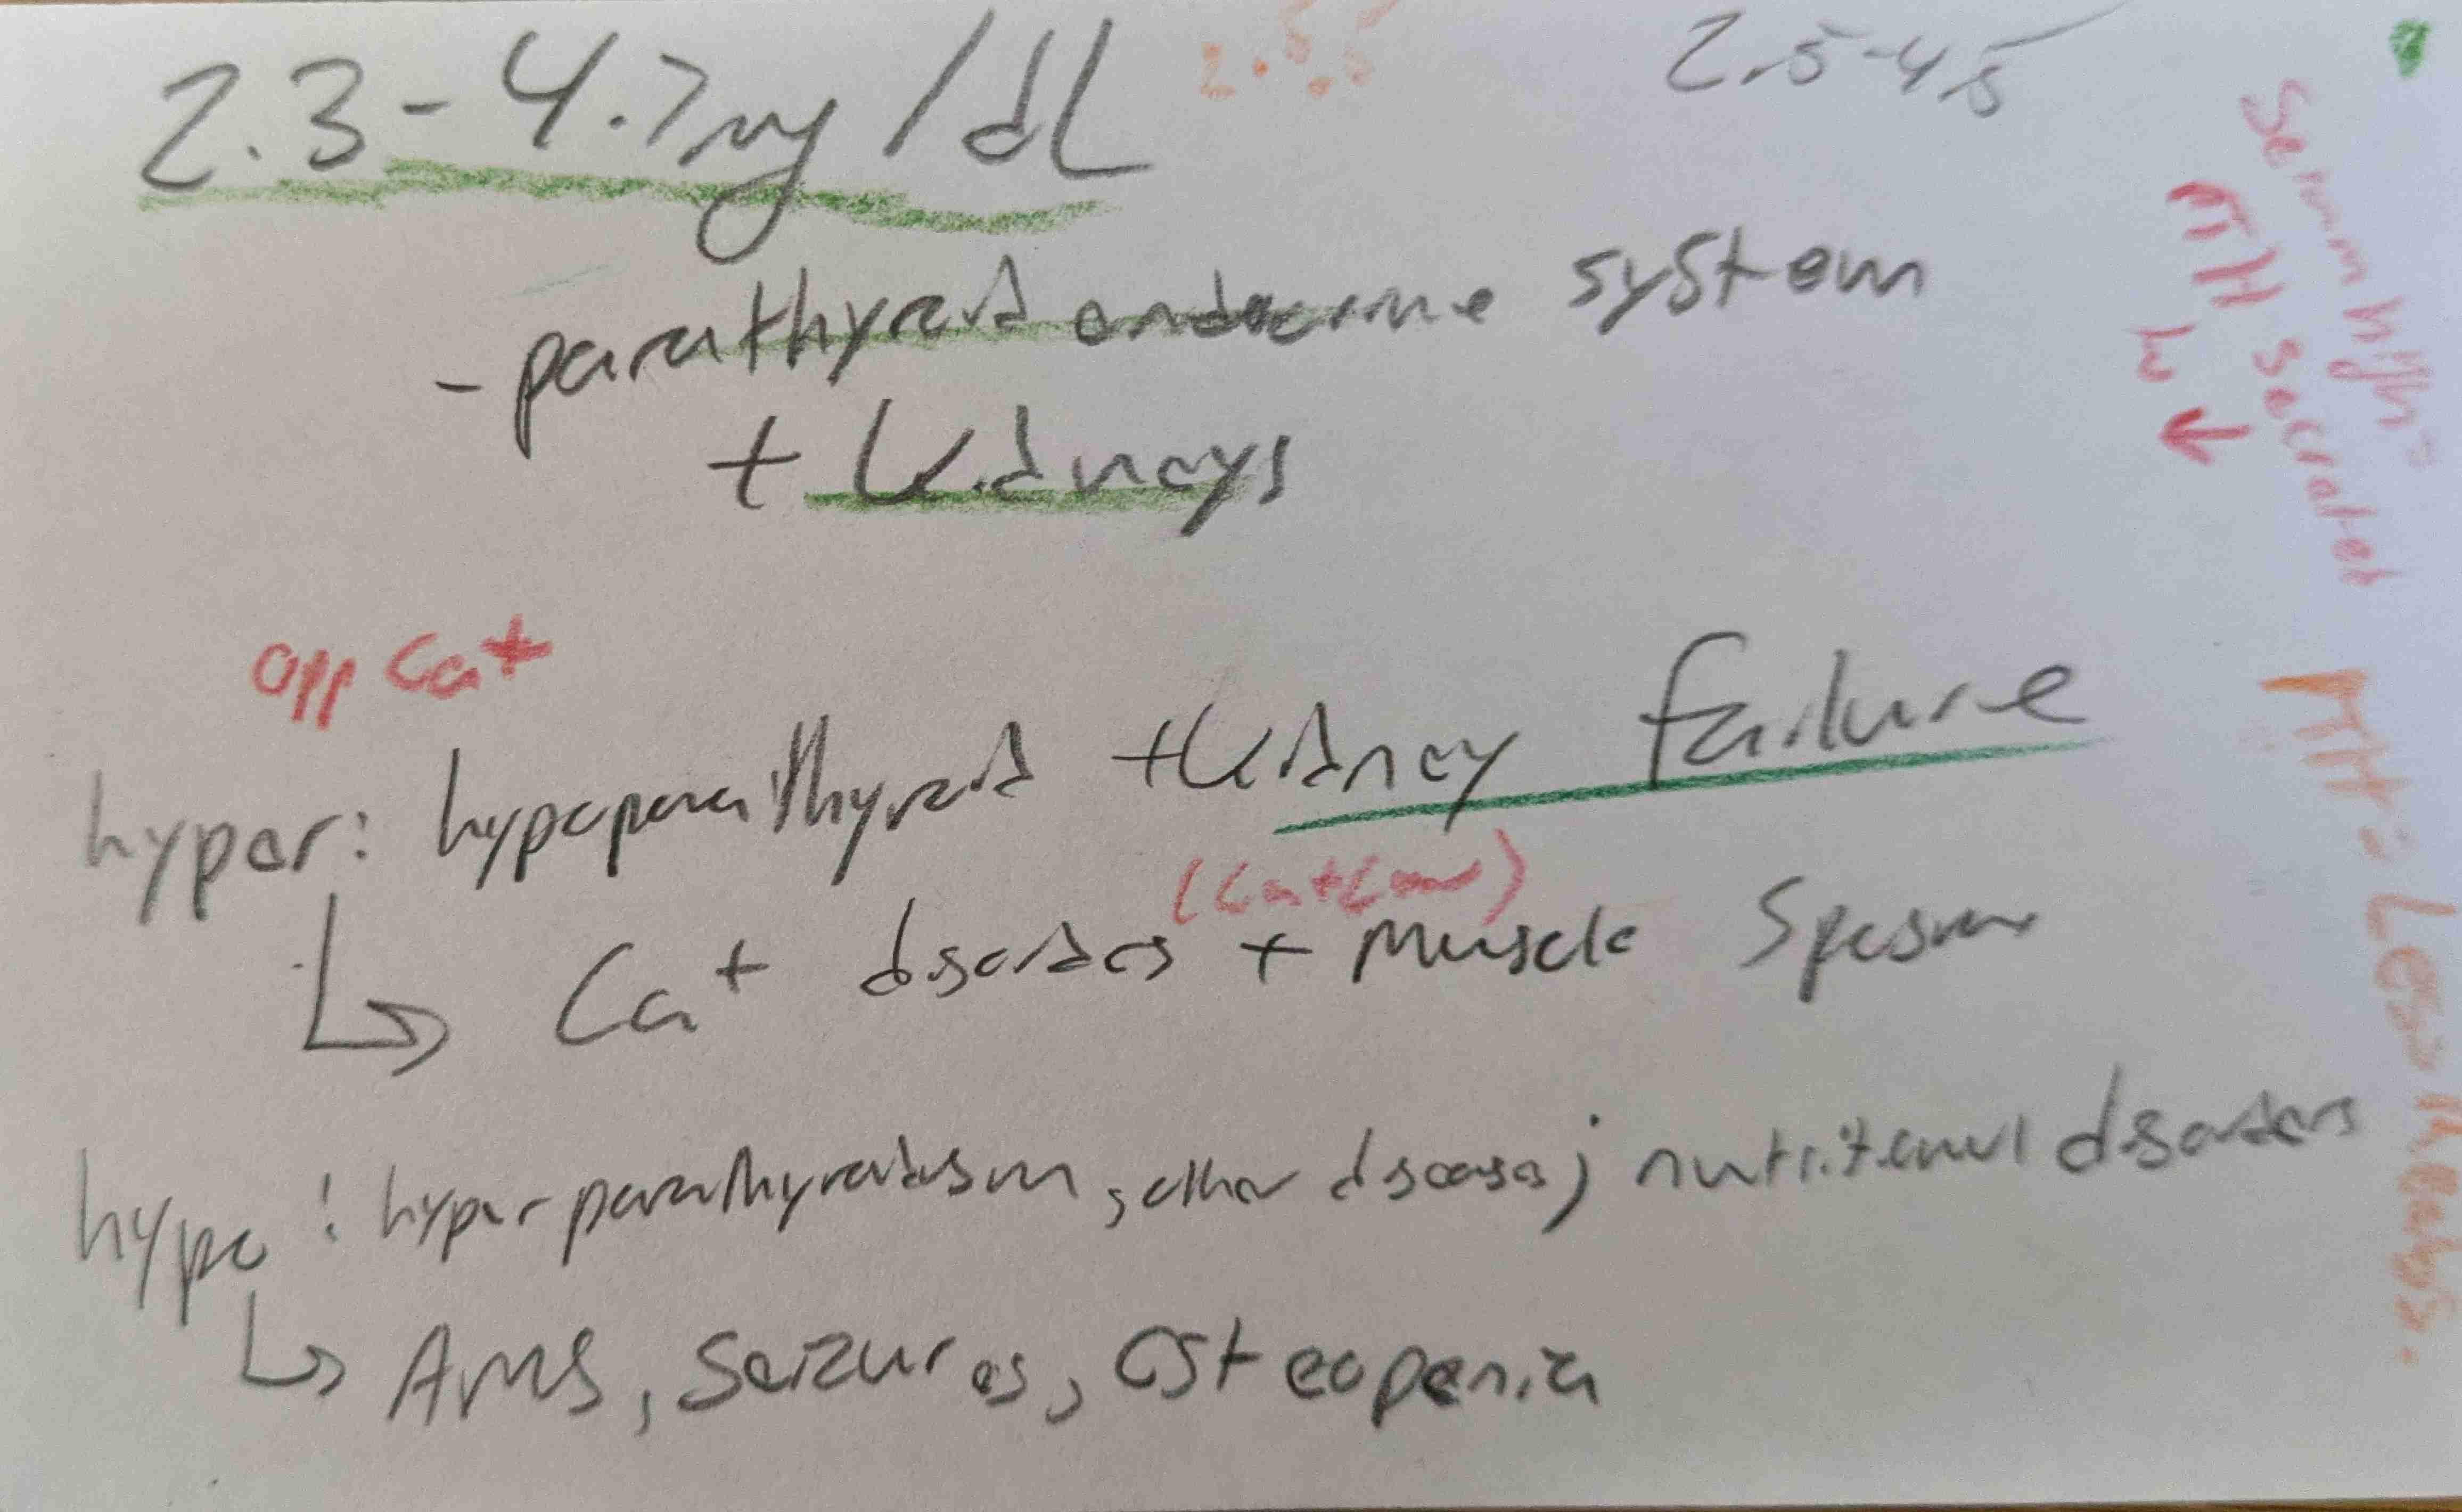 2.3-4.7mg/dL
2.5-4.5
- parathyroid endocrine system
+ kidneys
opp Ca+
hyper: hypoparathyroid + kidney failure
(Ca+ low)
Ca+ disorders + muscle spasm
hypo: hyperparathyroidism, other diseases; nutritional disorders
AMS, Seizures, Osteopenia
Serum high =
PTH secreted
to ↓
PTH = Less Reabs.